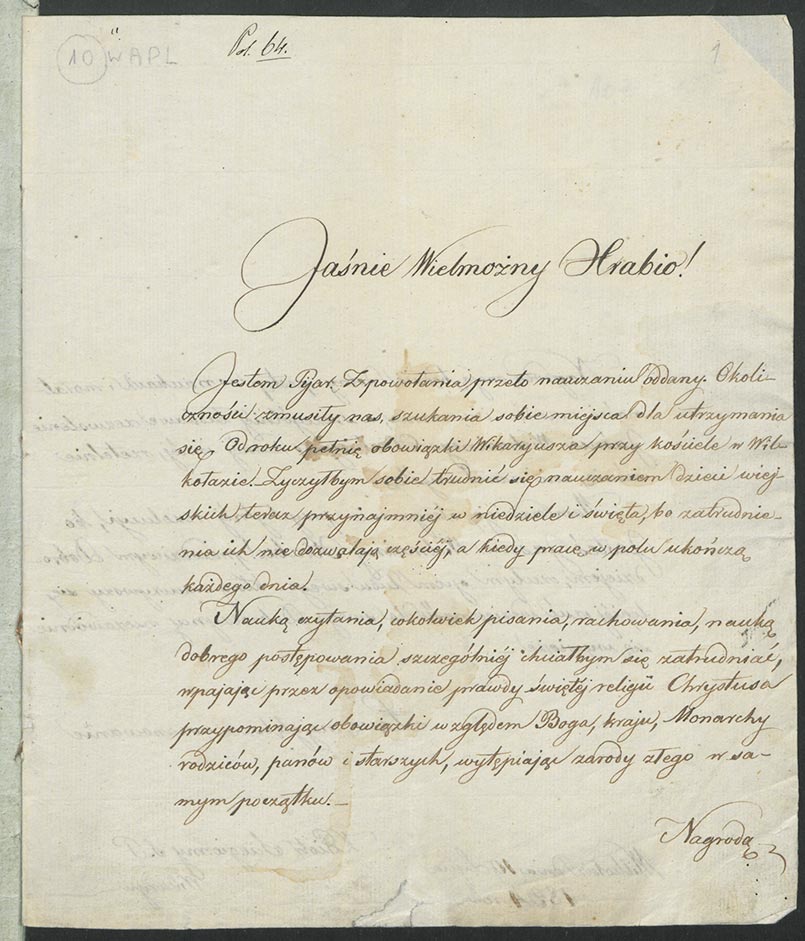 10 W A P L
Pol. 64.
1
Jaśnie Wielmożny Hrabio!
Jestem Pijar. Z powołania przeto nauczaniu oddany. Okoli-
czności zmusiły nas, szukania sobie miejsca dla utrzymania
się. Od roku pełnię obowiązki Wikaryusza przy kościele w Wil-
kołazie. Życzyłbym sobie trudnić się nauczaniem dzieci wiej-
skich teraz przynajmniéj w niedziele i święta, bo zatrudnie-
nia ich nie dozwalają częściéj, a kiedy pracę w polu ukończą
każdego dnia.
Nauką czytania, cokolwiek pisania, rachowania, nauką
dobrego postępowania szczególniéj chciałbym się zatrudniać,
wpajając przez opowiadanie prawdy świętéj religii Chrystusa
przypominając obowiązki względem Boga, kraju, Monarchy
rodziców, panów i starszych, wytępiając zarody złego w sa-
mym początku.
Nagrodą